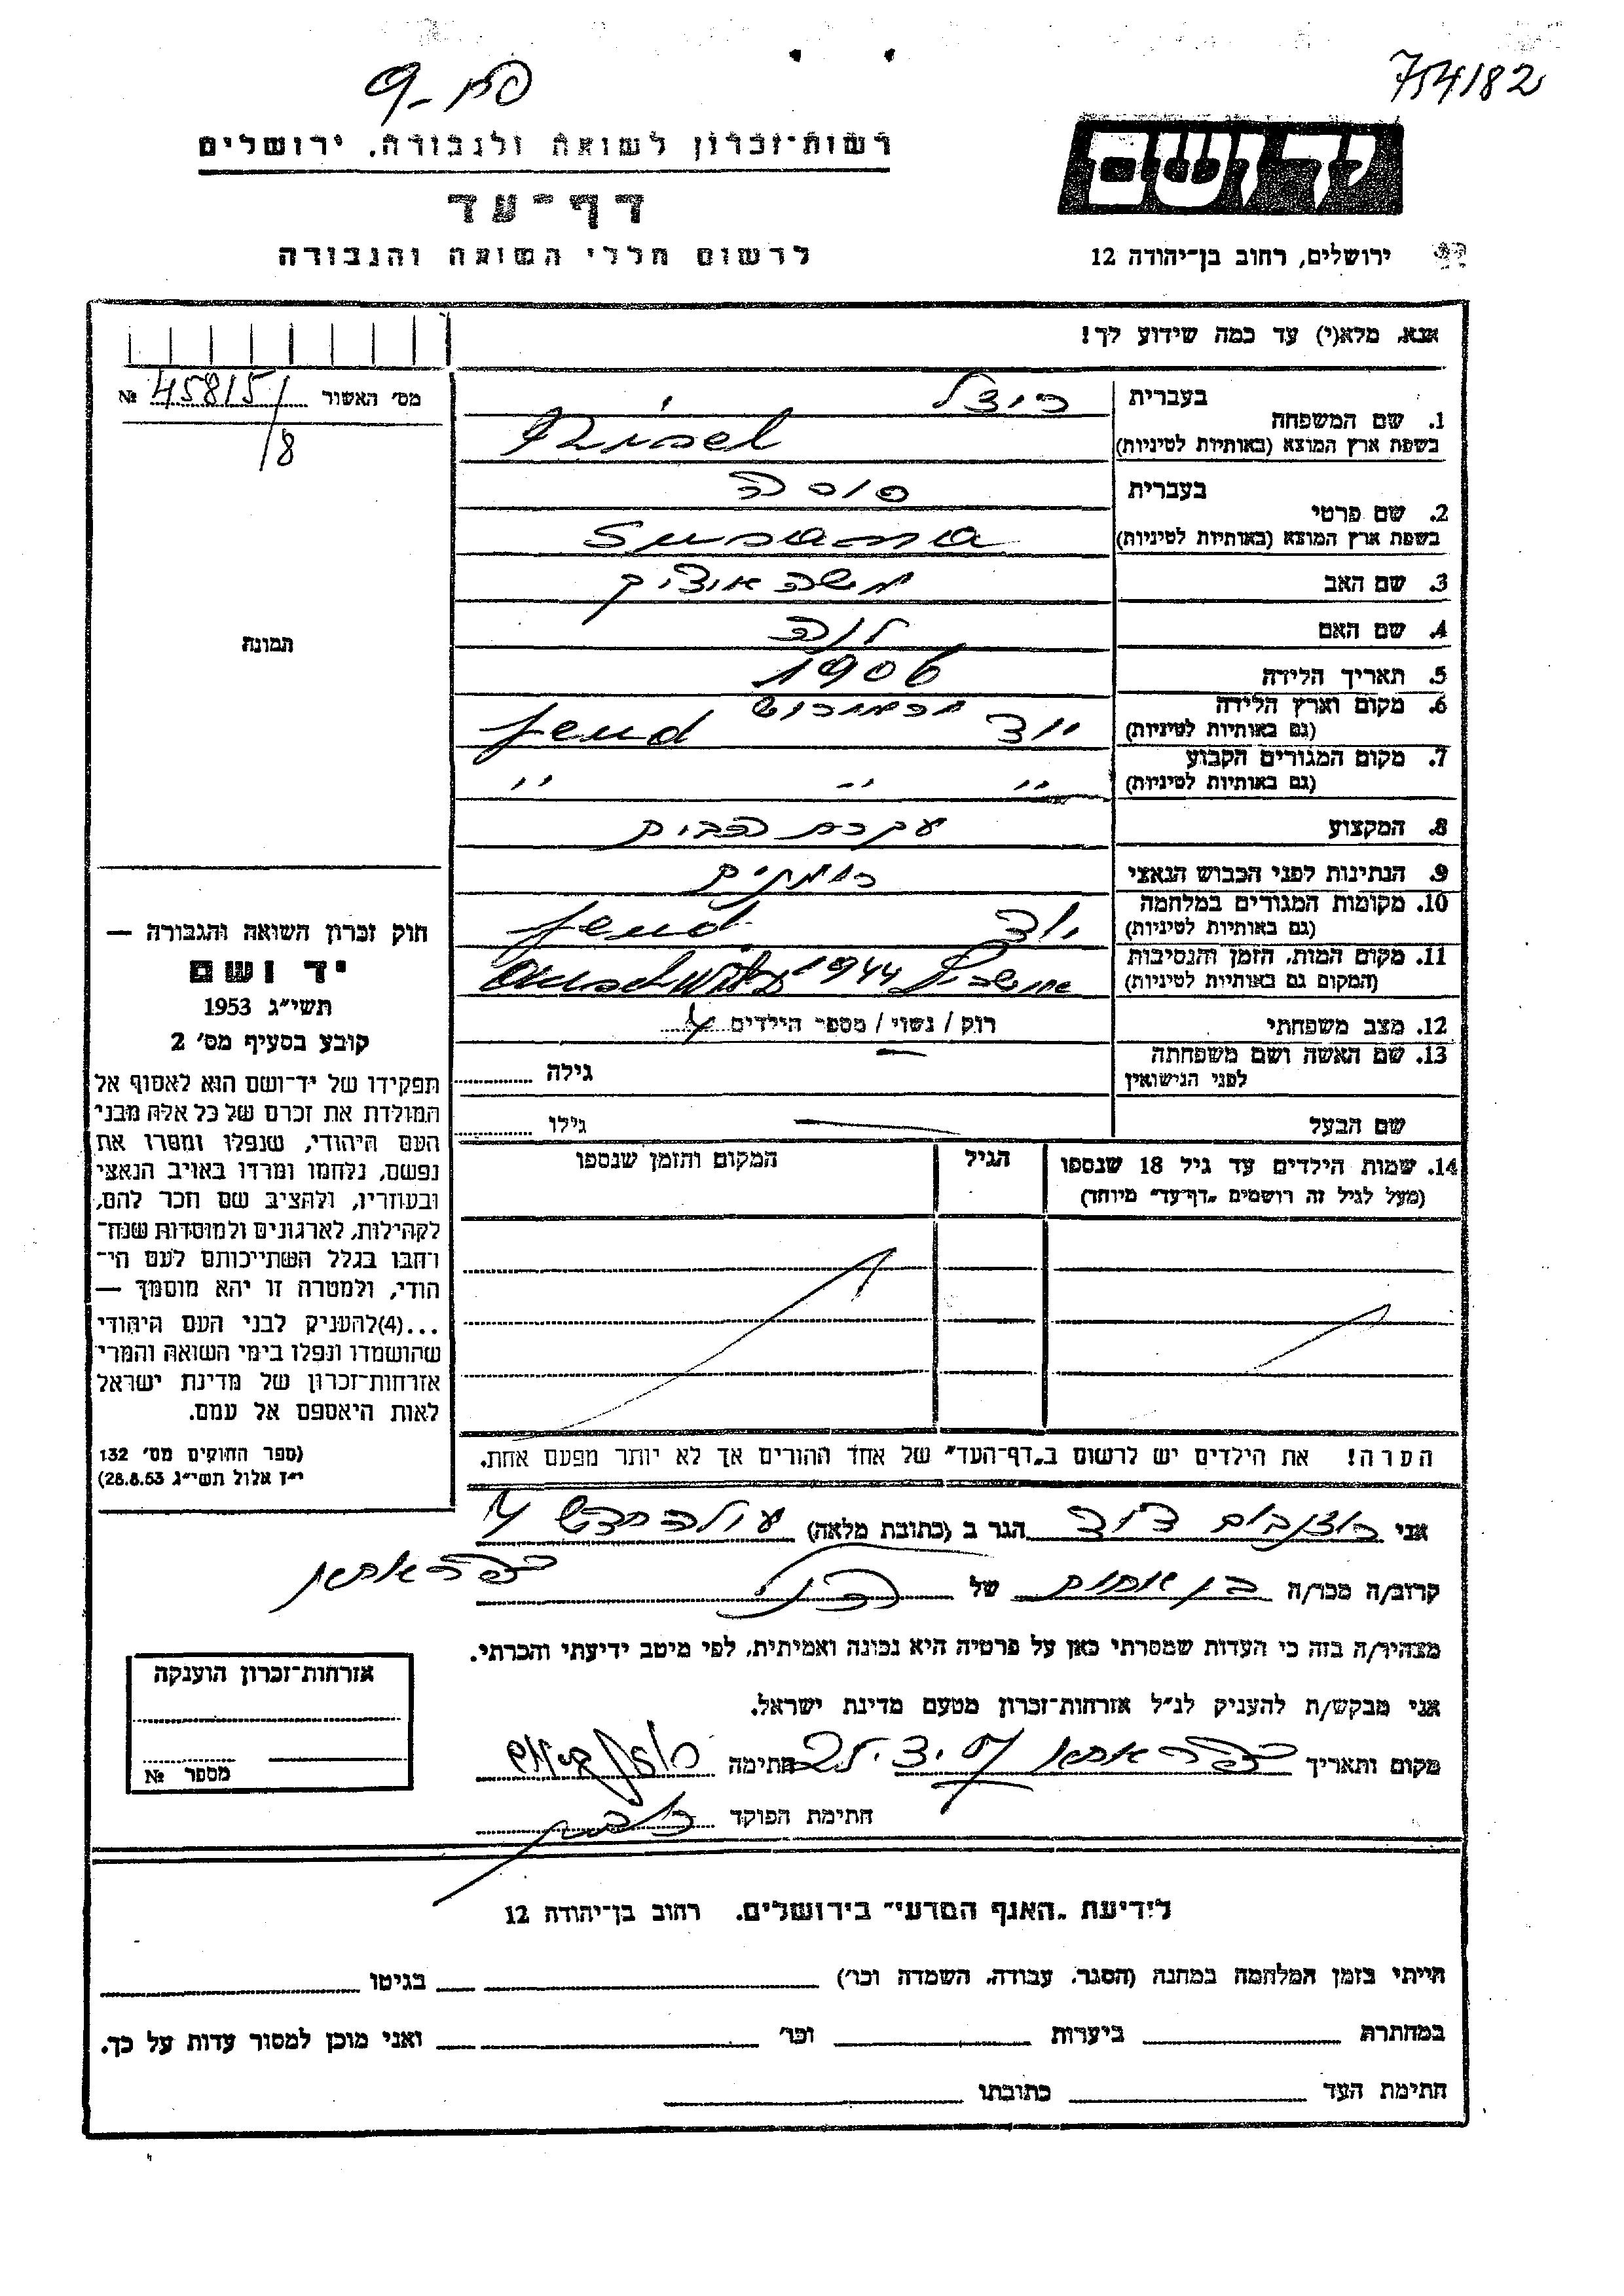 פת-9
754182
רשות-זכרון לשואה ולגבורה, ירושלים
דף-עד
לרשום חללי השואה והגבורה
יד ושם
ירושלים, רחוב בן-יהודה 12
אנא, מלא(י) עד כמה שידוע לך!
מס' האשור № 45815/
/8
תמונה
1. שם המשפחה
בעברית
בשפת ארץ המוצא (באותיות לטיניות)
2. שם פרטי
בעברית
בשפת ארץ המוצא (באותיות לטיניות) Susana
3. שם האב
4. שם האם
5. תאריך הלידה 1906
6. מקום וארץ הלידה
(גם באותיות לטיניות) יוד Jeud
7. מקום המגורים הקבוע
(גם באותיות לטיניות) " " "
8. המקצוע עקרת הבית
9. הנתינות לפני הכבוש הנאצי
10. מקומות המגורים במלחמה
(גם באותיות לטיניות) יוד Jeud
11. מקום המות, הזמן והנסיבות
(המקום גם באותיות לטיניות) 1944 Auschwitz
12. מצב משפחתי רוק / נשוי / מספר הילדים 4
13. שם האשה ושם משפחתה
לפני הנישואין
גילה
שם הבעל
גילו
14. שמות הילדים עד גיל 18 שנספו
(מעל לגיל זה רושמים „דף-עד" מיוחד)
הגיל
המקום והזמן שנספו
הערה! את הילדים יש לרשום ב„דף-העד" של אחד ההורים אך לא יותר מפעם אחת.
חוק זכרון השואה והגבורה —
יד ושם
תשי"ג 1953
קובע בסעיף מס' 2
תפקידו של יד-ושם הוא לאסוף אל
המולדת את זכרם של כל אלה מבני
העם היהודי, שנפלו ומסרו את
נפשם, נלחמו ומרדו באויב הנאצי
ובעוזריו, ולהציב שם וזכר להם,
לקהילות, לארגונים ולמוסדות שנח-
רחבו בגלל השתייכותם לעם הי-
הודי, ולמטרה זו יהא מוסמך —
...(4)להעניק לבני העם היהודי
שהושמדו ונפלו בימי השואה והמרי
אזרחות-זכרון של מדינת ישראל
לאות היאספם אל עמם.
(ספר החוקים מס' 132
י"ז אלול תשי"ג 28.8.53)
אני דוד הגר ב (כתובת מלאה) 4
קרוב/ה מכר/ה בן אחות של
מצהיר/ה בזה כי העדות שמסרתי כאן על פרטיה היא נכונה ואמיתית, לפי מיטב ידיעתי והכרתי.
אני מבקש/ת להעניק לנ"ל אזרחות-זכרון מטעם מדינת ישראל.
מקום ותאריך
חתימה
חתימת הפוקד
אזרחות-זכרון הוענקה
מספר №
לידיעת „האגף המדעי" בירושלים, רחוב בן-יהודה 12
הייתי בזמן המלחמה במחנה (הסגר, עבודה, השמדה וכו') בגיטו
במחתרת ביערות וכו' ואני מוכן למסור עדות על כך.
חתימת העד כתובתו